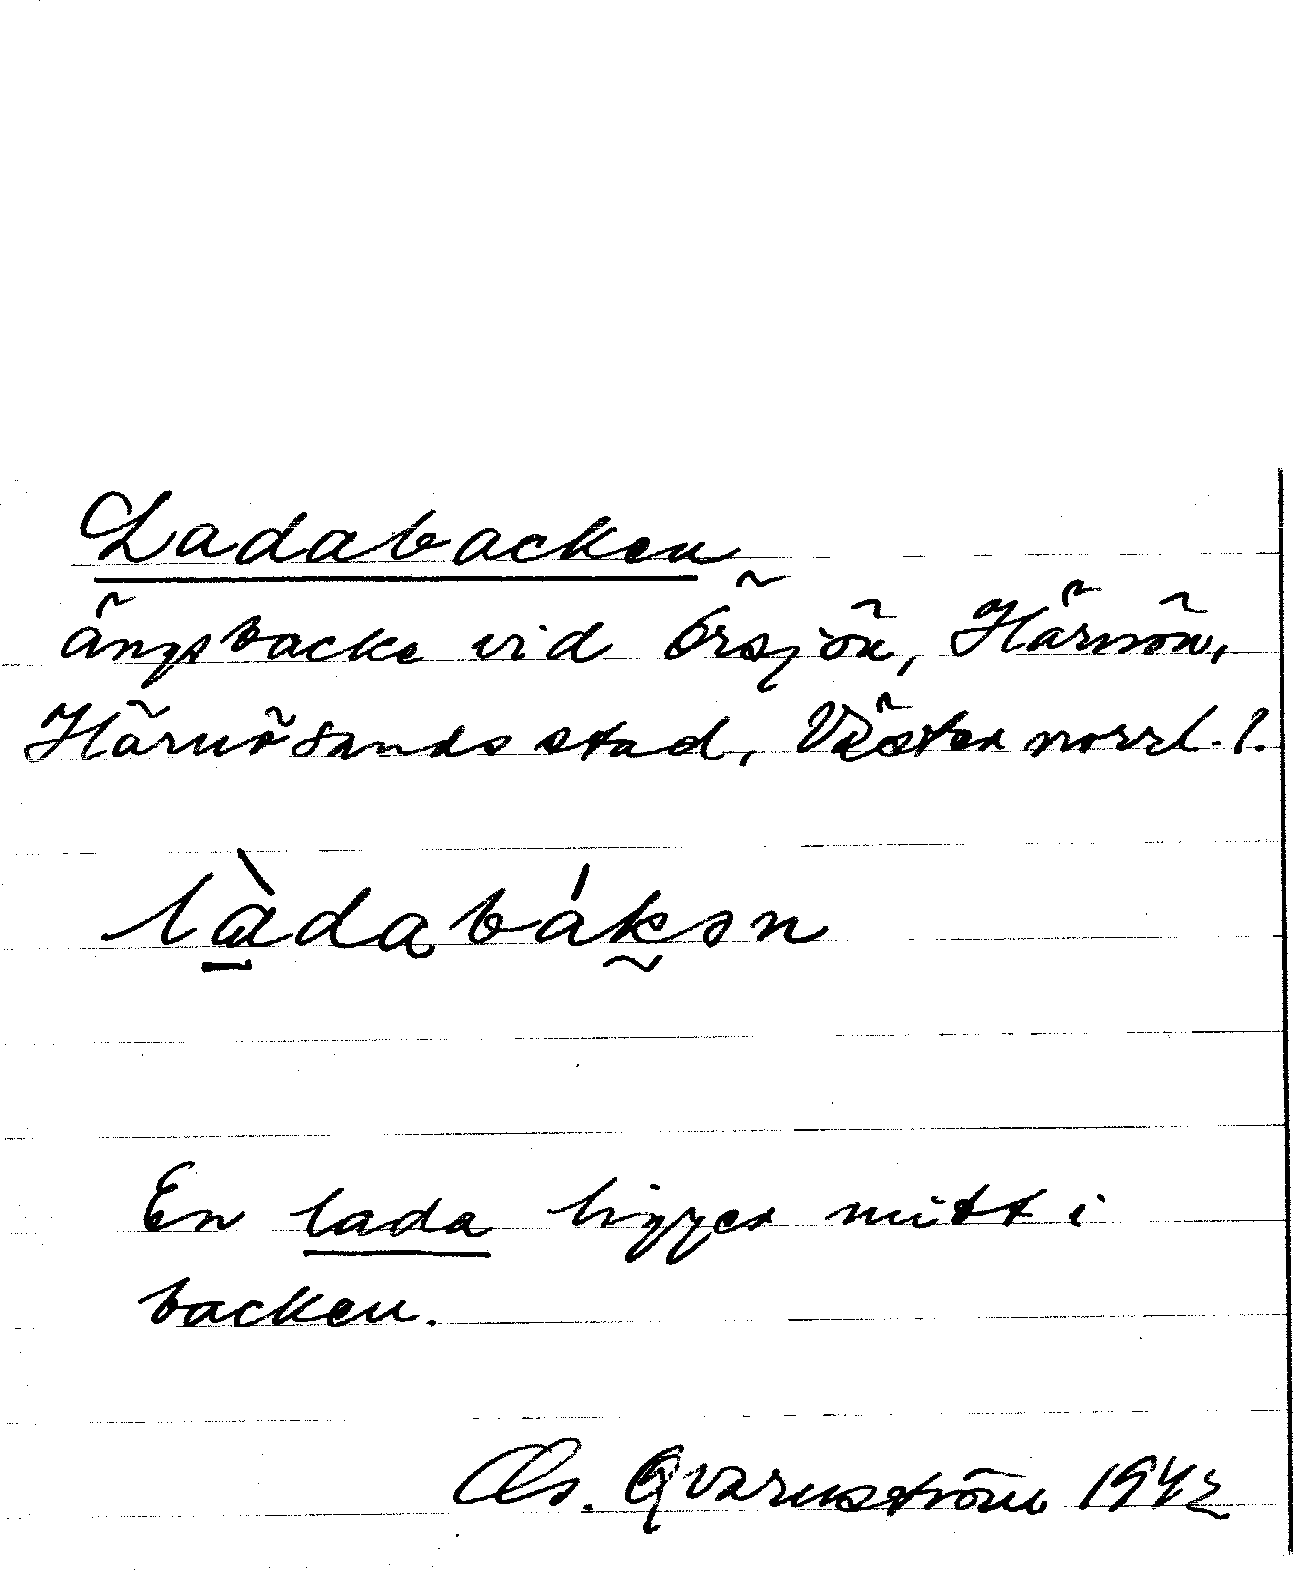 Ladabacken
ängsbacke vid Örsjön, Härnön,
Härnösands stad, Västernorrl. l.
làdabáksn
En lada ligger mitt i
backen.
Cls. Qvarnström 1942